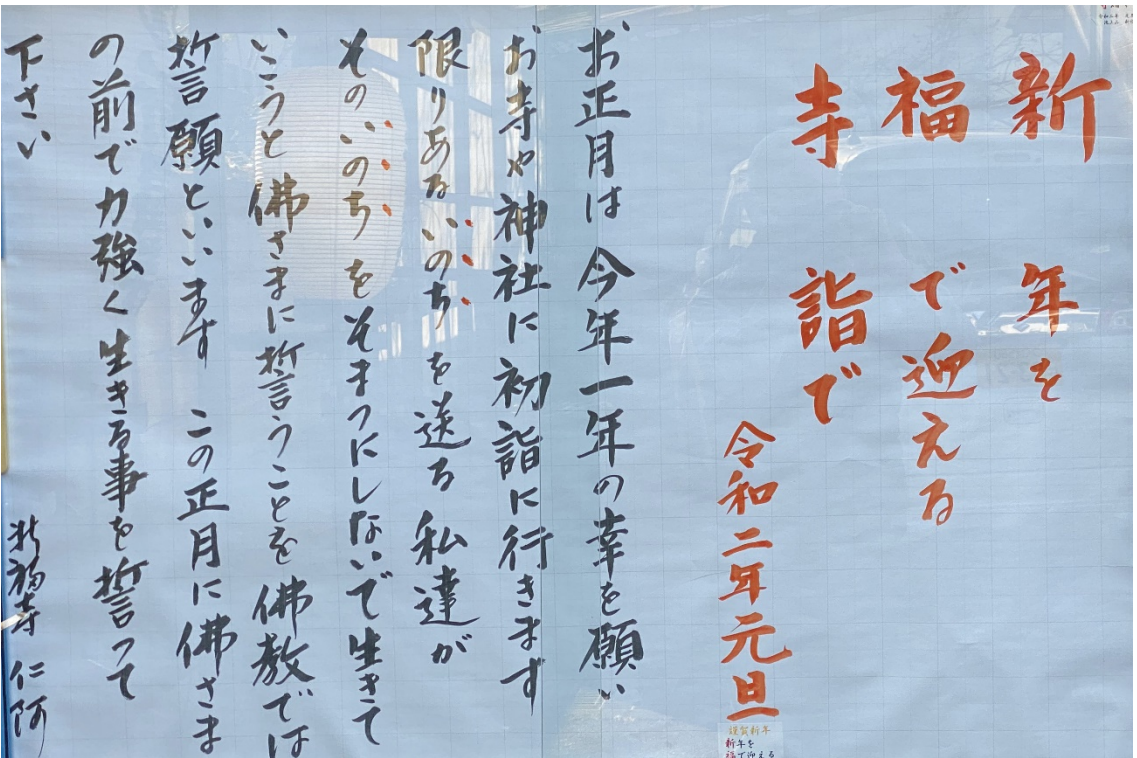 新年を
福で迎える
寺詣で
令和二年元旦
お正月は今年一年の幸を願い
お寺や神社に初詣に行きます
限りあるいのちを送る私達が
そのいのちをそまつにしないで生きて
いこうと佛さまに誓うことを佛教では
誓願といいます この正月に佛さま
の前で力強く生きる事を誓って
下さい
新福寺 仁阿
謹賀新年
新年を
福で迎える